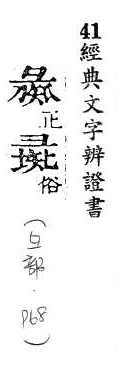 41經典文字辨證書
正
俗
(彑部.P68)